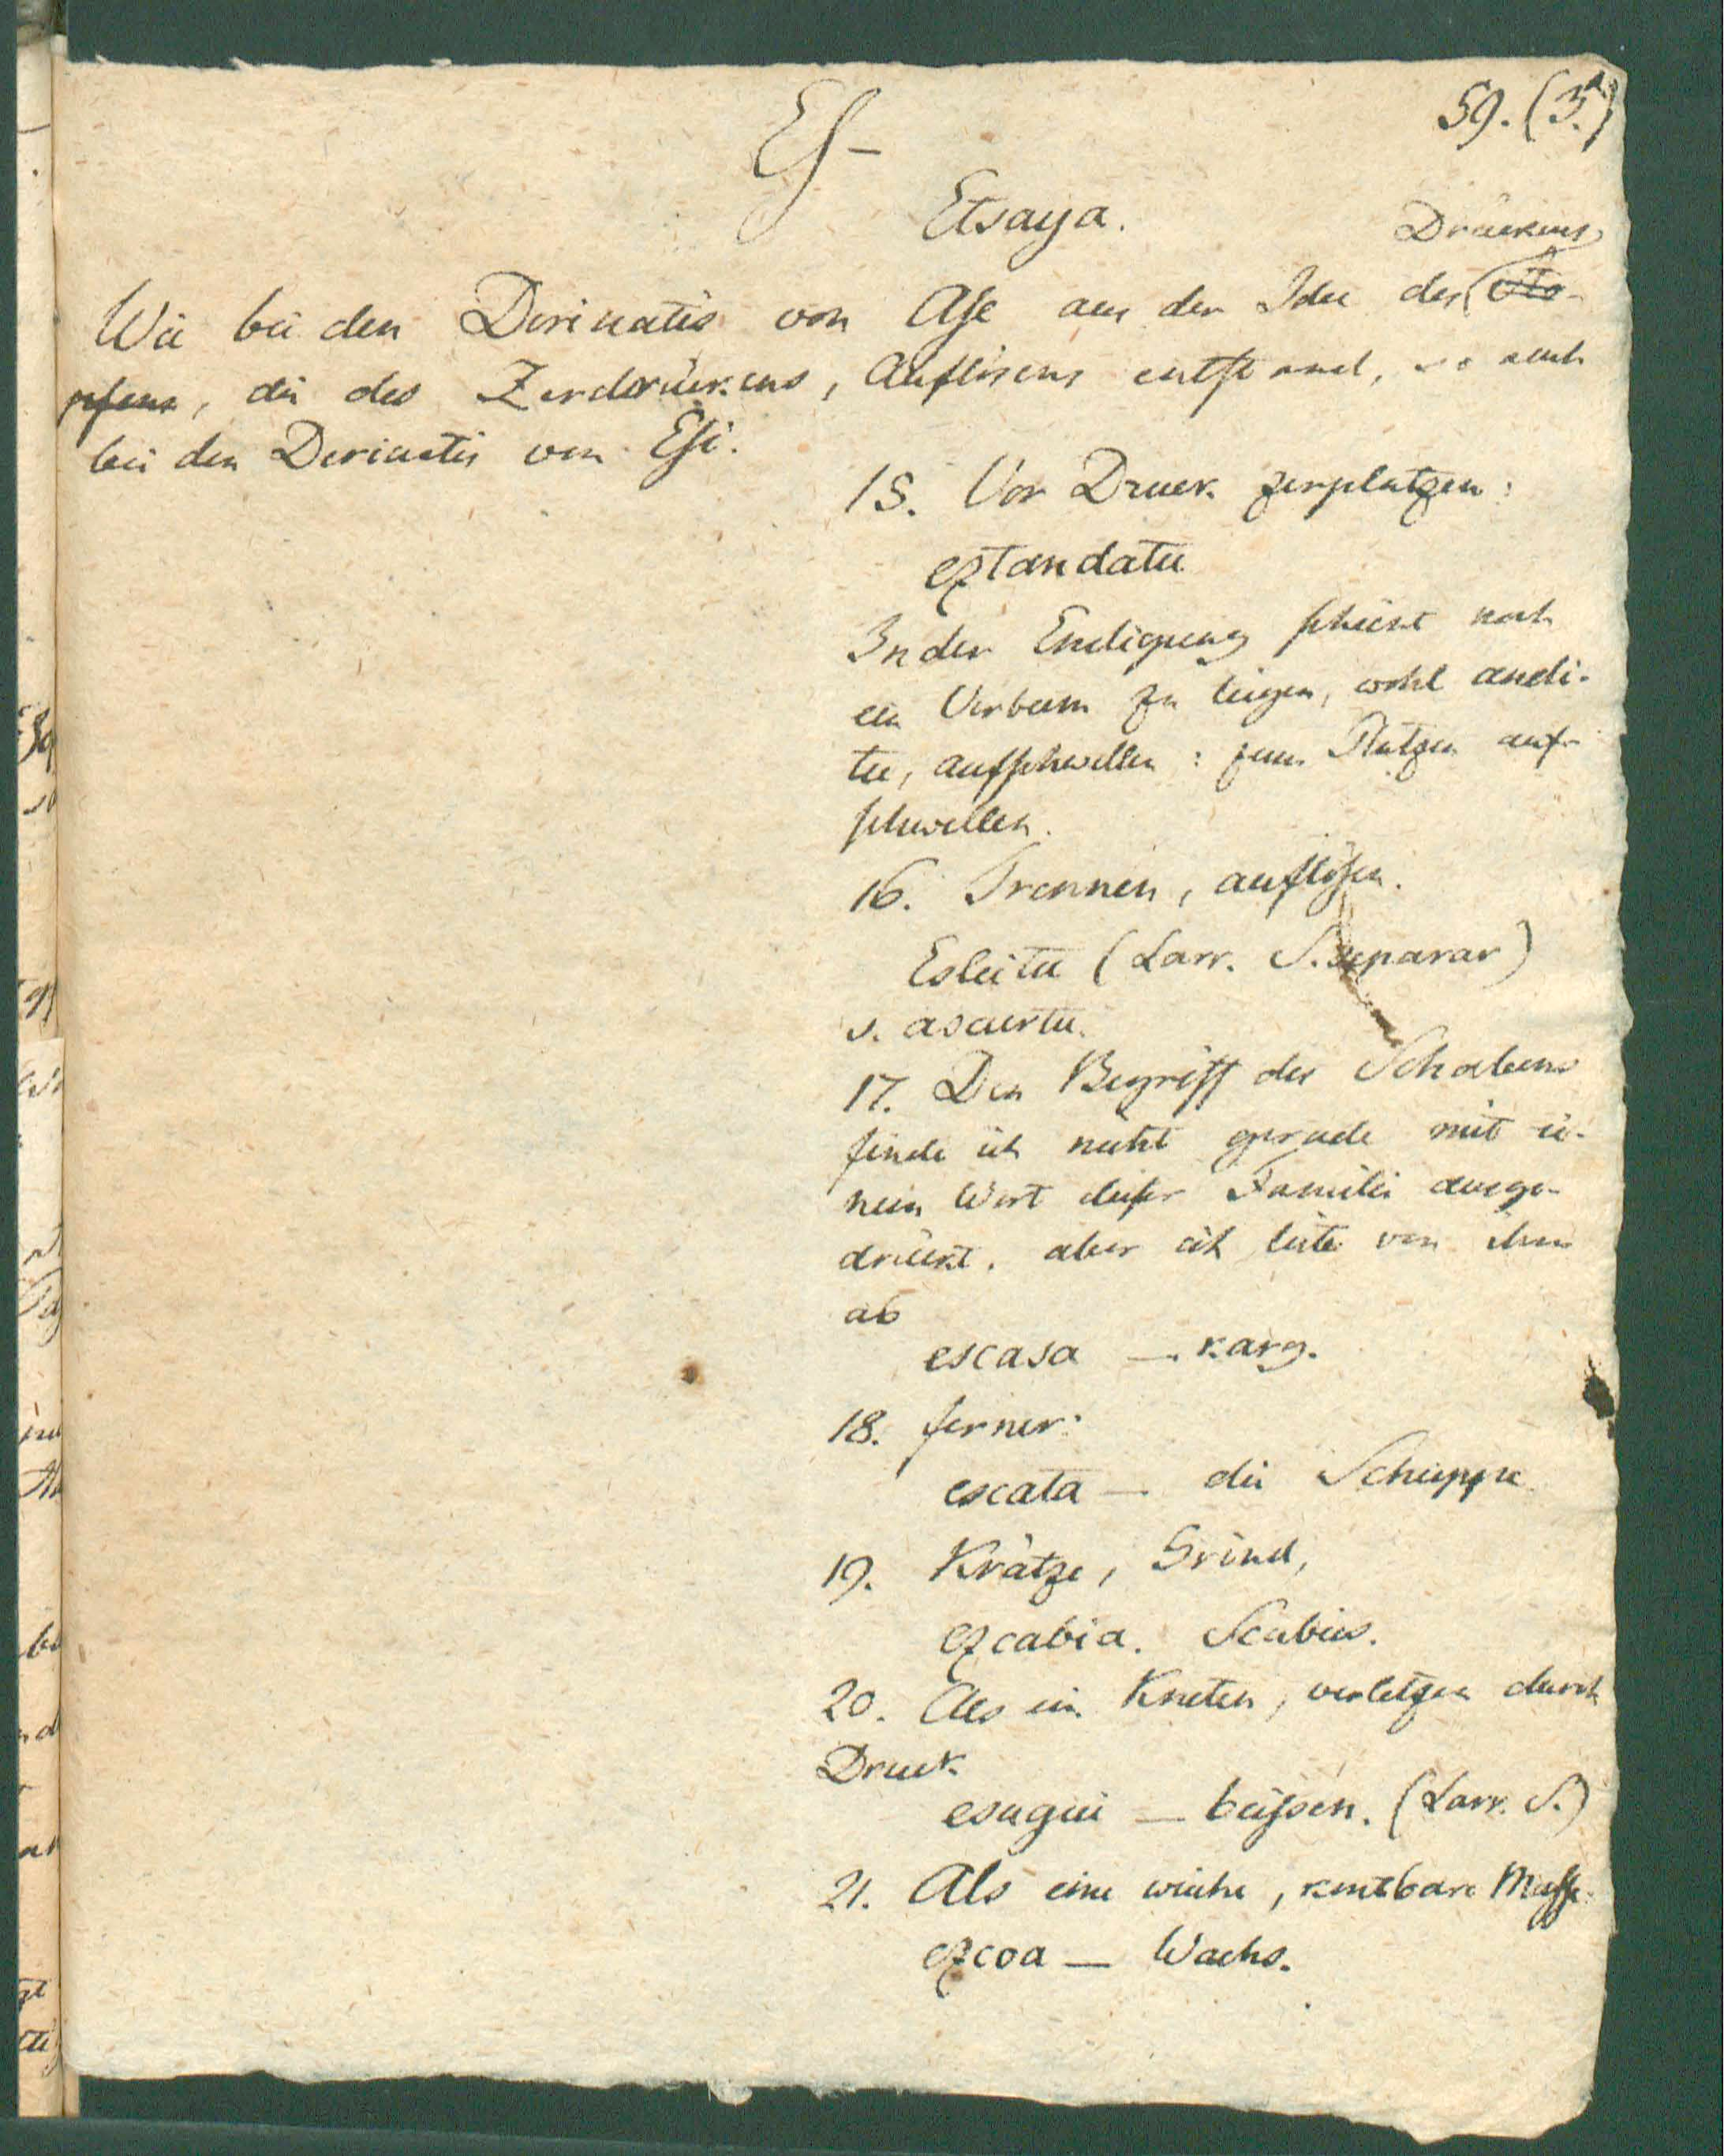 59. (3.a)
Es-
Etsaya.
Drückens
Wie bei den Derivatis von Ase aus der Idee des Sto-
pfens, die des Zerdrückens, Auflösens entstand, so auch
bei den Derivatis von Esi.
15. Vor Druck zerplatzen:
eztandatu
In der Endigung scheint noch
ein Verbum zu liegen, wohl andi-
tu, aufschwellen: zum Platzen auf-
schwellen.
16. Trennen, auflösen.
Esleitu (Larr. S. separar)
s. ascaertu.
17. Den Begriff des Schabens
finde ich nicht gerade mit ei-
nem Wort dieser Familie ausge-
drückt, aber ich leite von ihm
ab
escasa — karg.
18. ferner:
escata — die Schuppe
19. Krätze, Grind,
ezcabia. Scabies.
20. Als ein Kneten, verletzen durch
Druck
esugui — beissen. (Larr. S.)
21. Als eine weiche, knetbare Masse.
ezcoa — Wachs.